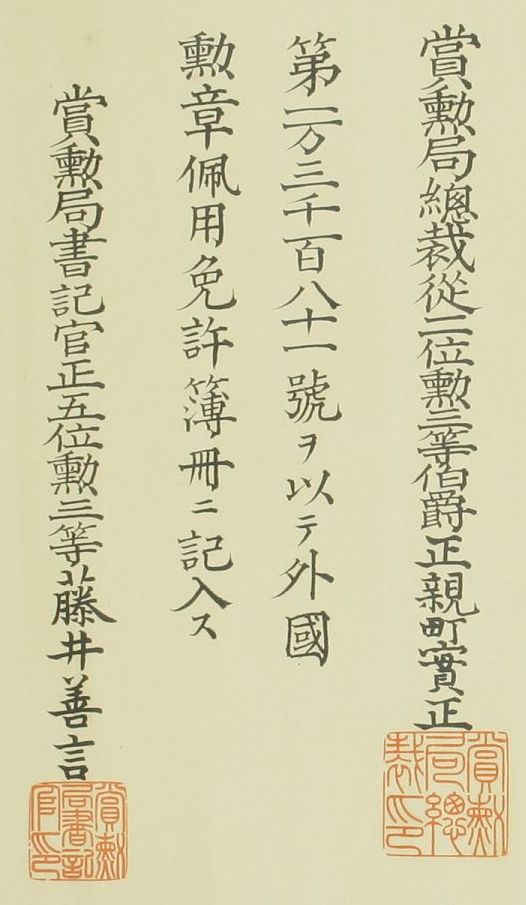 賞勲局總裁從二位勲三等伯爵正親町實正
賞勲局總裁印
第一万三千一百八十一號ヲ以テ外國
勲章佩用免許簿冊ニ記入ス
賞勲局書記官正五位勲三等藤井善言
賞勲局書記官印